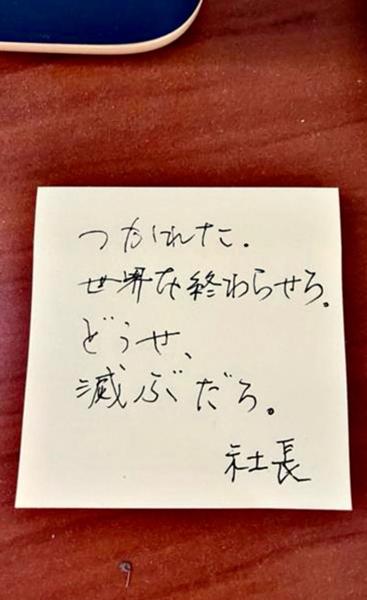 つかれた.
世界を終わらせろ。
どうせ、
滅ぶだろ。
社長